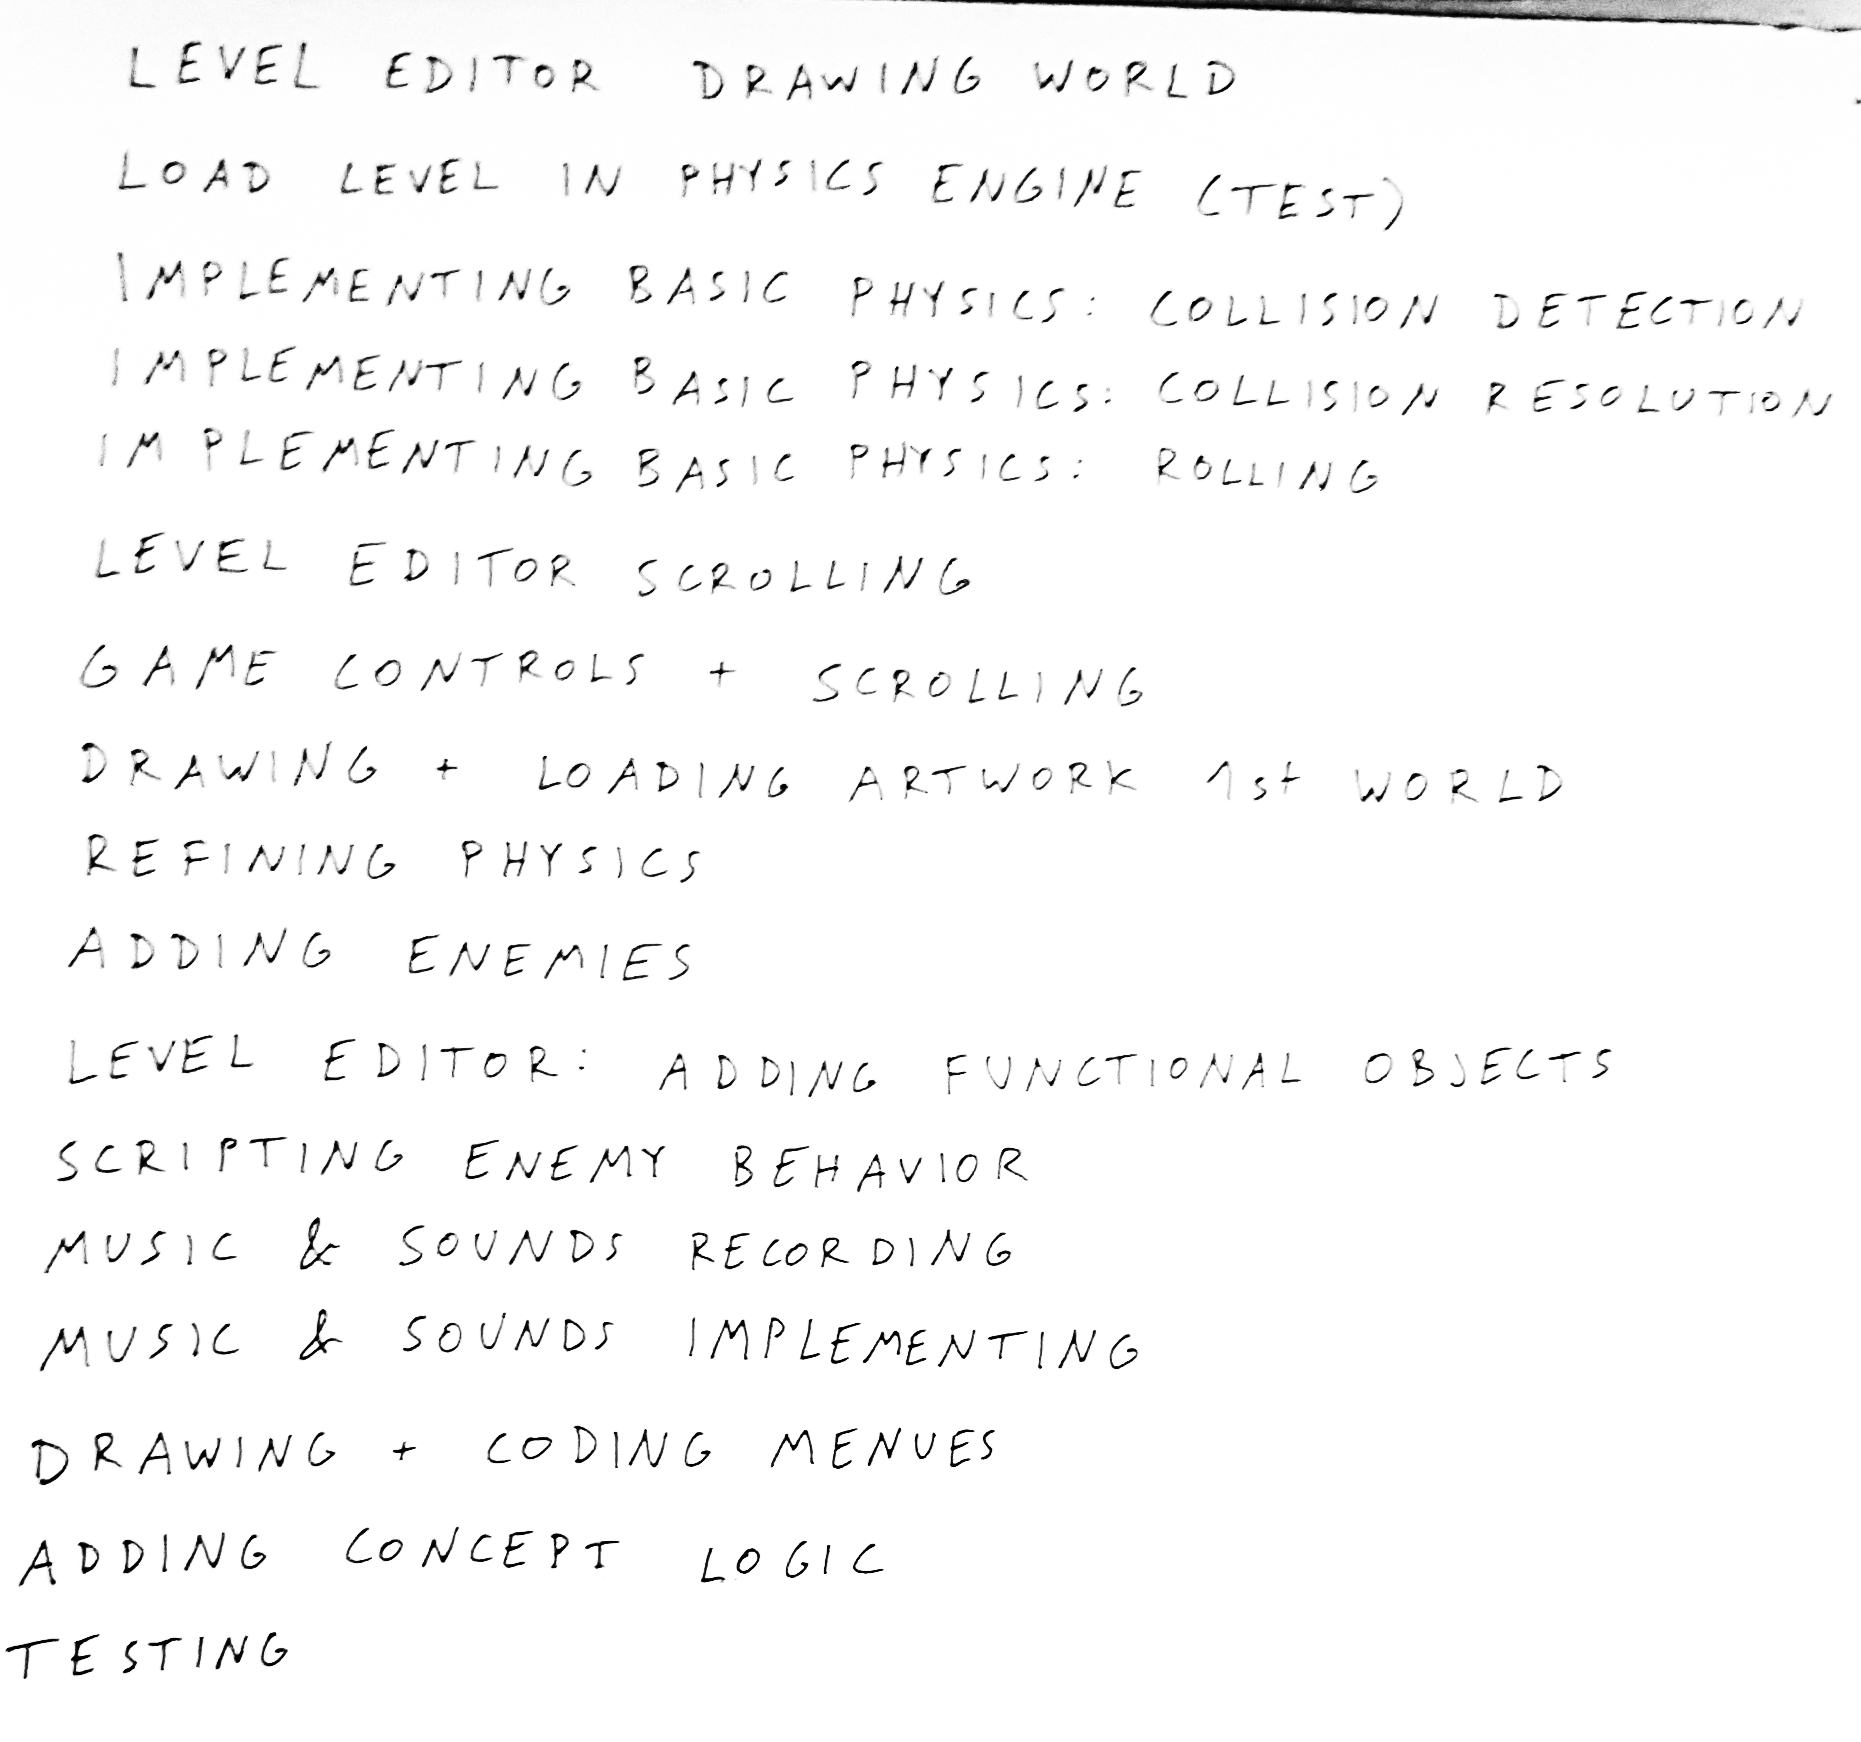 LEVEL EDITOR DRAWING WORLD
LOAD LEVEL IN PHYSICS ENGINE (TEST)
IMPLEMENTING BASIC PHYSICS: COLLISION DETECTION
IMPLEMENTING BASIC PHYSICS: COLLISION RESOLUTION
IMPLEMENTING BASIC PHYSICS: ROLLING
LEVEL EDITOR SCROLLING
GAME CONTROLS + SCROLLING
DRAWING + LOADING ARTWORK 1st WORLD
REFINING PHYSICS
ADDING ENEMIES
LEVEL EDITOR: ADDING FUNCTIONAL OBJECTS
SCRIPTING ENEMY BEHAVIOR
MUSIC & SOUNDS RECORDING
MUSIC & SOUNDS IMPLEMENTING
DRAWING + CODING MENUES
ADDING CONCEPT LOGIC
TESTING